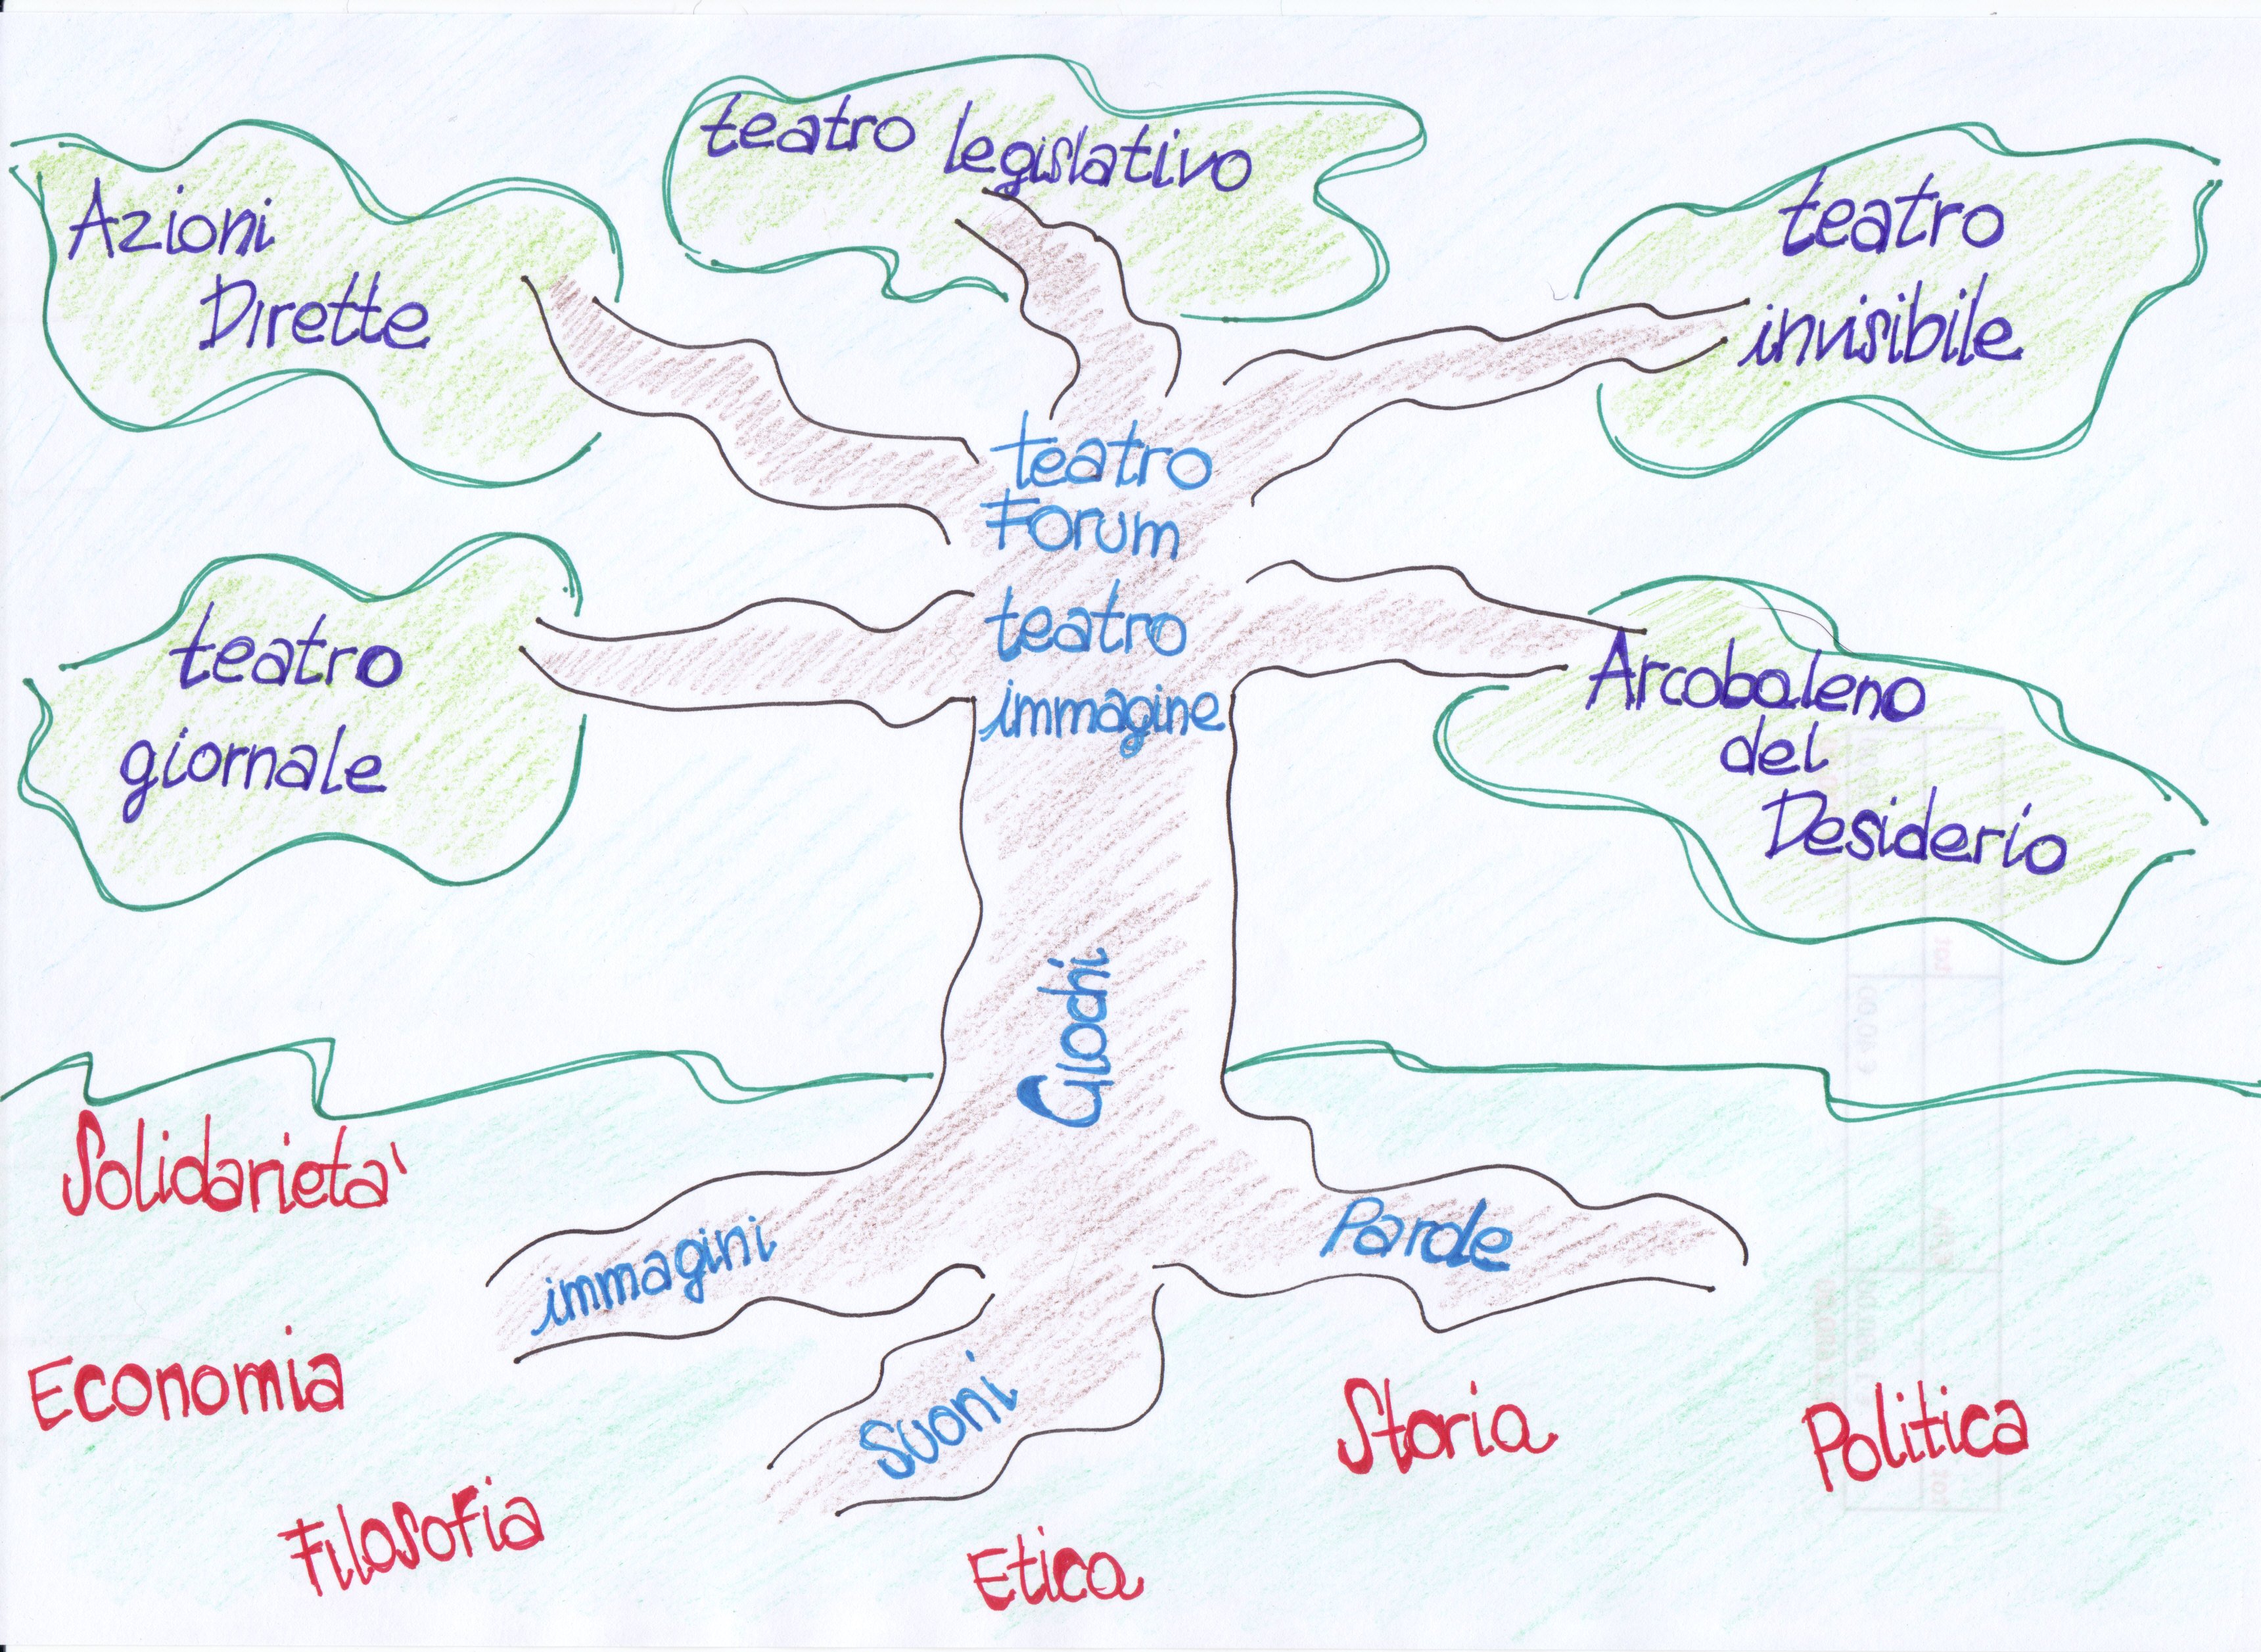 teatro legislativo
Azioni
Dirette
teatro
invisibile
teatro
Forum
teatro
immagine
teatro
giornale
Arcobaleno
del
Desiderio
Giochi
Solidarieta'
immagini
Parole
Suoni
Economia
Storia
Politica
Filosofia
Etica